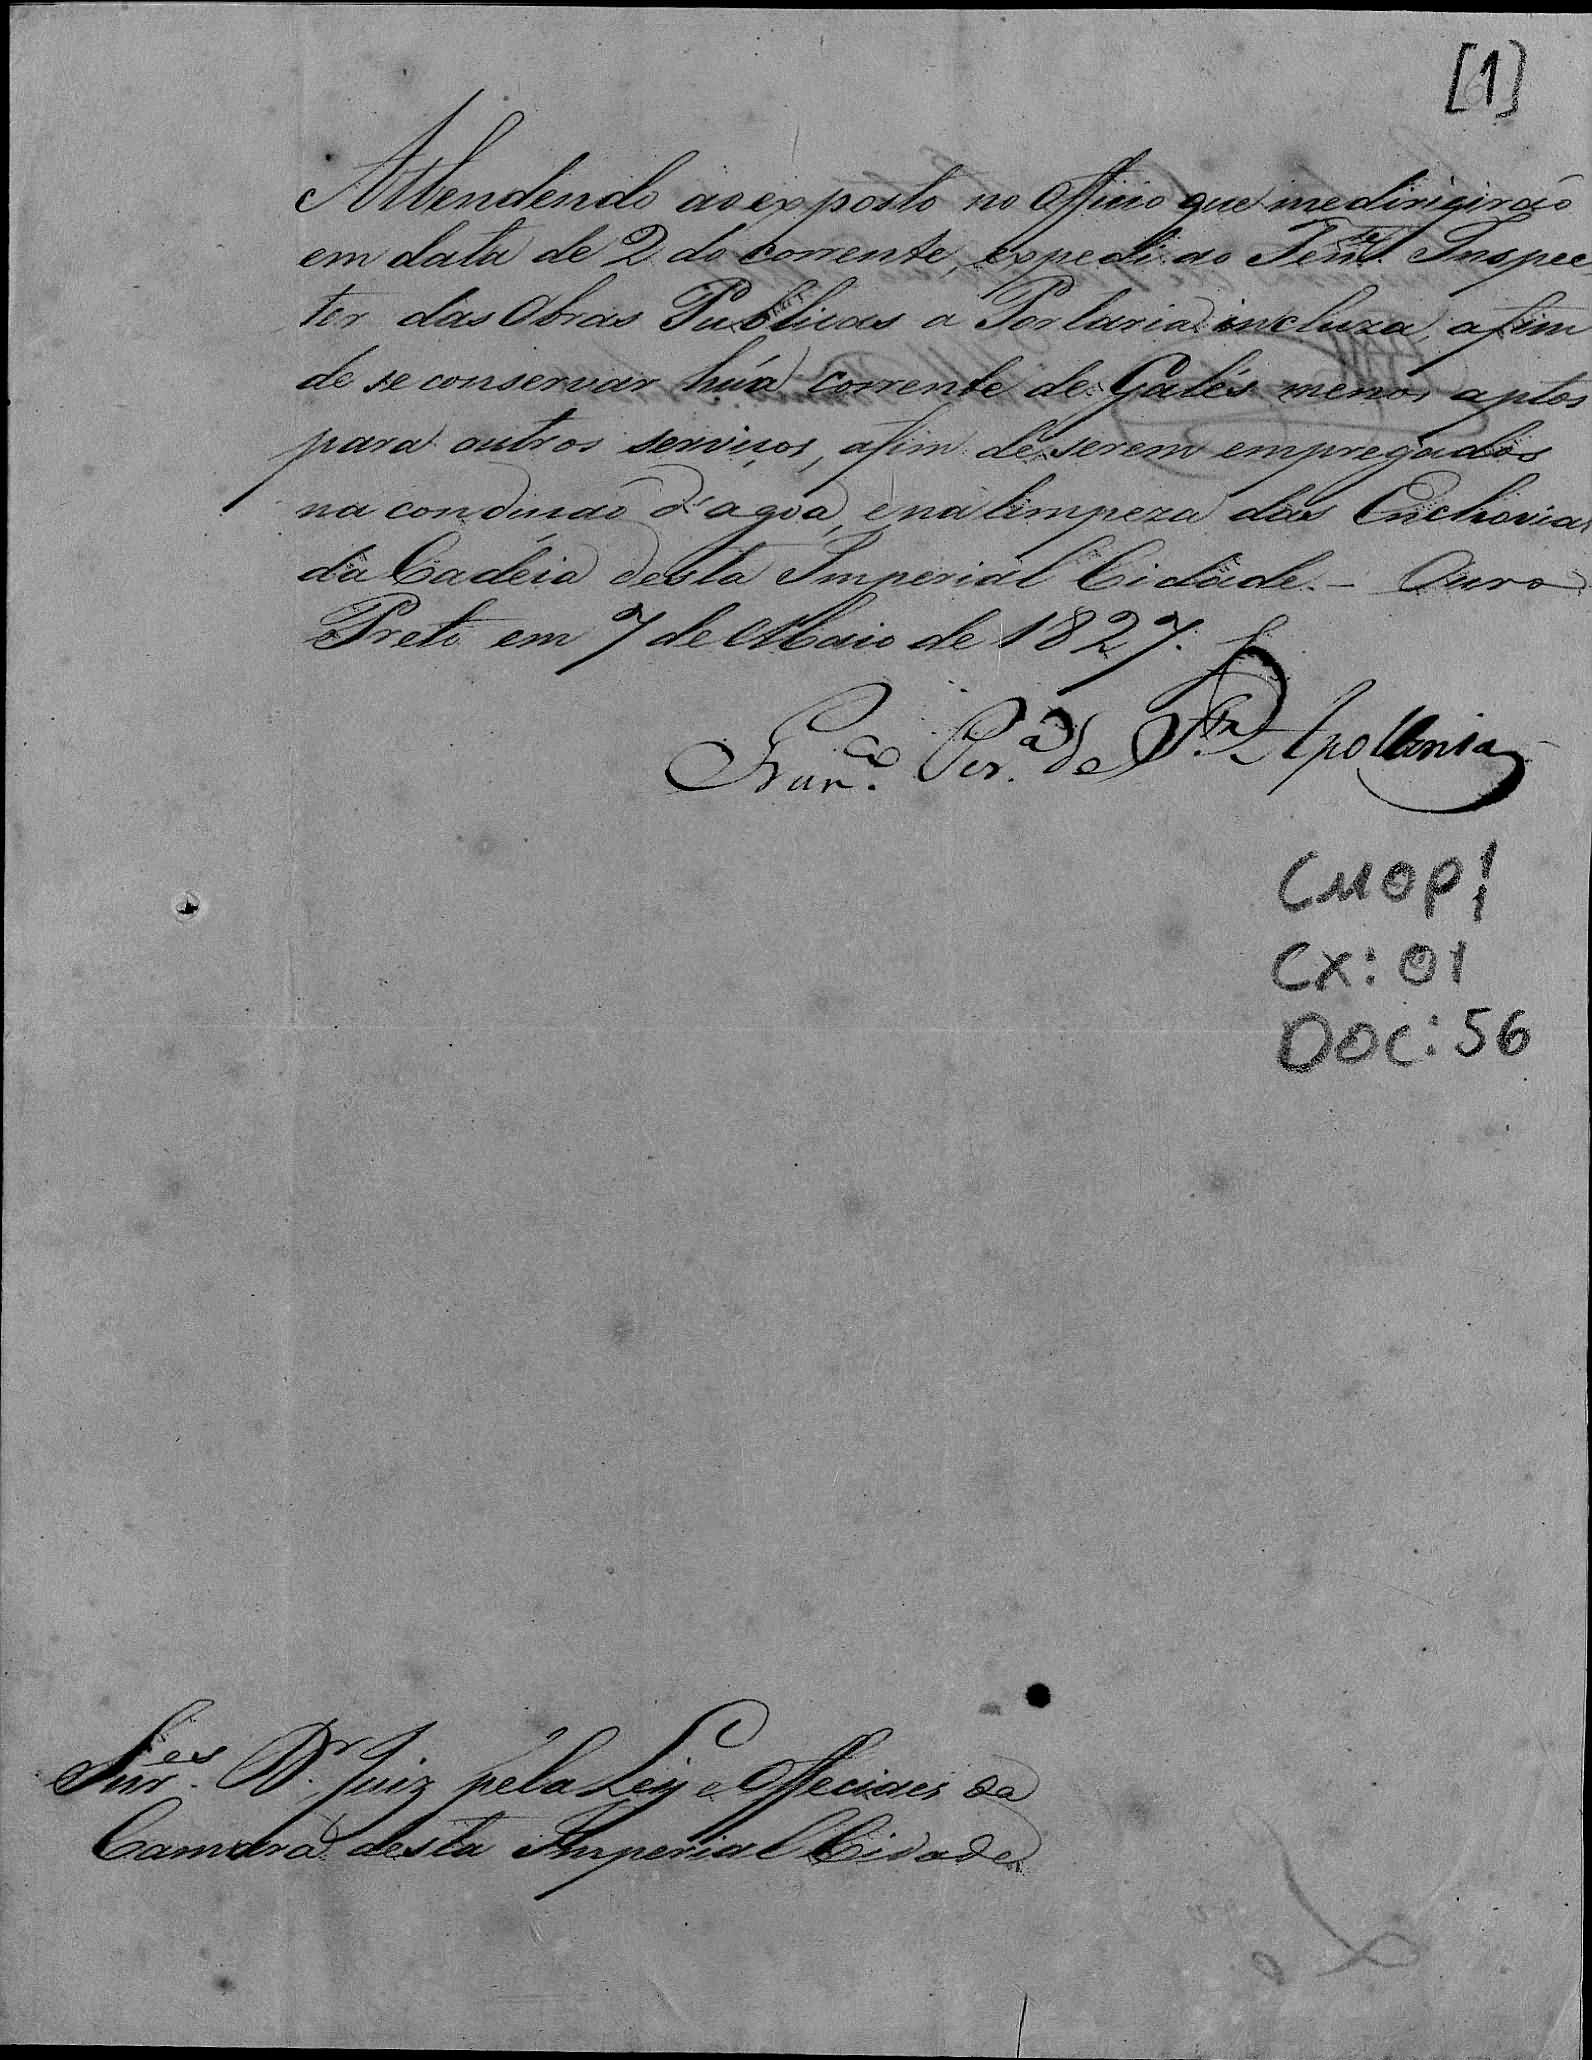 [1]
Attendendo ao exposto no Officio que me dirigirão
em data de 2 do corrente, expedi ao Ten.te Inspec
tor das Obras Publicas a Portaria incluza, afim
de se conservar húa corrente de Galés menos aptos
para outros serviços, afim de serem empregados
na condução d'agoa, e na limpeza das Enchovias
da Cadêia desta Imperial Cidade. - Ouro
Preto em 7 de Maio de 1827.
Fran.co Per.a de S.ta Apollonia
CMOP
Cx: 01
DOC: 56
Snr.es D.r Juiz pela Ley e Officiaes da
Camara desta Imperial Cidade